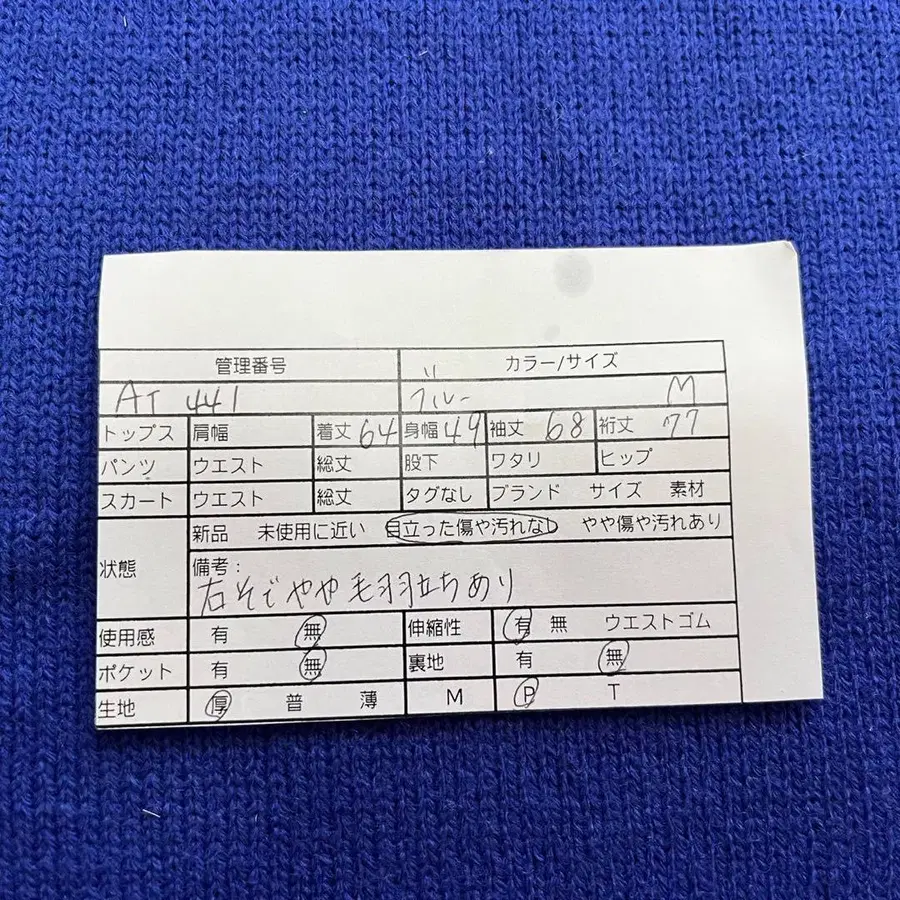 管理番号 カラー/サイズ
AT 441 ブルー M
トップス 肩幅 着丈 64 身幅 49 袖丈 68 裄丈 77
パンツ ウエスト 総丈 股下 ワタリ ヒップ
スカート ウエスト 総丈 タグなし ブランド サイズ 素材
状態 新品 未使用に近い 目立った傷や汚れなし やや傷や汚れあり
備考:
右そでやや毛羽立ちあり
使用感 有 無 伸縮性 有 無 ウエストゴム
ポケット 有 無 裏地 有 無
生地 厚 普 薄 M P T